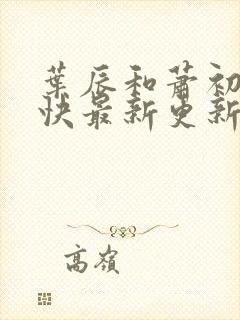 葉辰和蕭初
快最新更新
高嶺